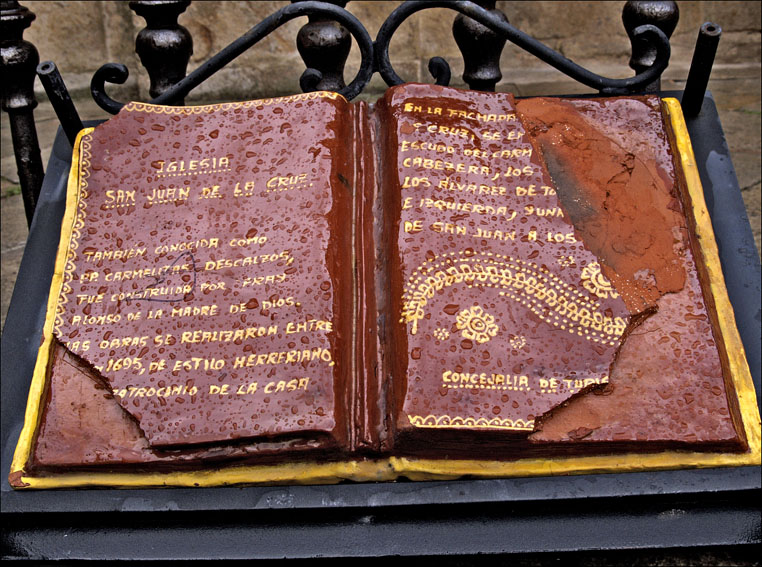 IGLESIA
SAN JUAN DE LA CRUZ.
TAMBIEN CONOCIDA COMO
CARMELITAS DESCALZOS,
FUE CONSTRUIDA POR FRAY
ALONSO DE LA MADRE DE DIOS.
AS OBRAS SE REALIZARON ENTRE
1695, DE ESTILO HERRERIANO.
PATROCINIO DE LA CASA
EN LA FACHADA
CRUZ, SE E
ESCUDO DEL CARM
CABEZERA, LOS
LOS ALVAREZ DE TO
E IZQUIERDA, Y UNA
DE SAN JUAN A LOS
CONCEJALIA DE TURIS